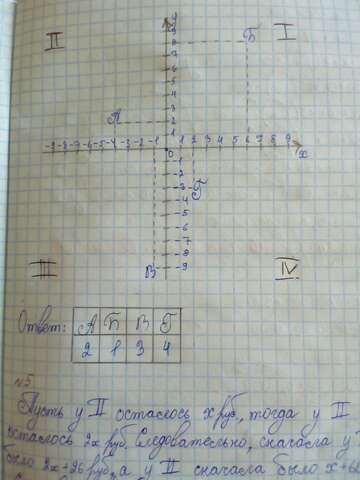 y
II
I
9
8
7
6
5
4
3
2
1
Б
А
-9 -8 -7 -6 -5 -4 -3 -2 -1 0 1 2 3 4 5 6 7 8 9
x
-1
-2
-3
-4
-5
-6
-7
-8
-9
Г
В
III
IV
Ответ:
А Б В Г
2 1 3 4
№5
Пусть у II осталось x руб, тогда у II
осталось 2x руб. Следовательно, сначала у
было 2x+26 руб, а у II сначала было x+